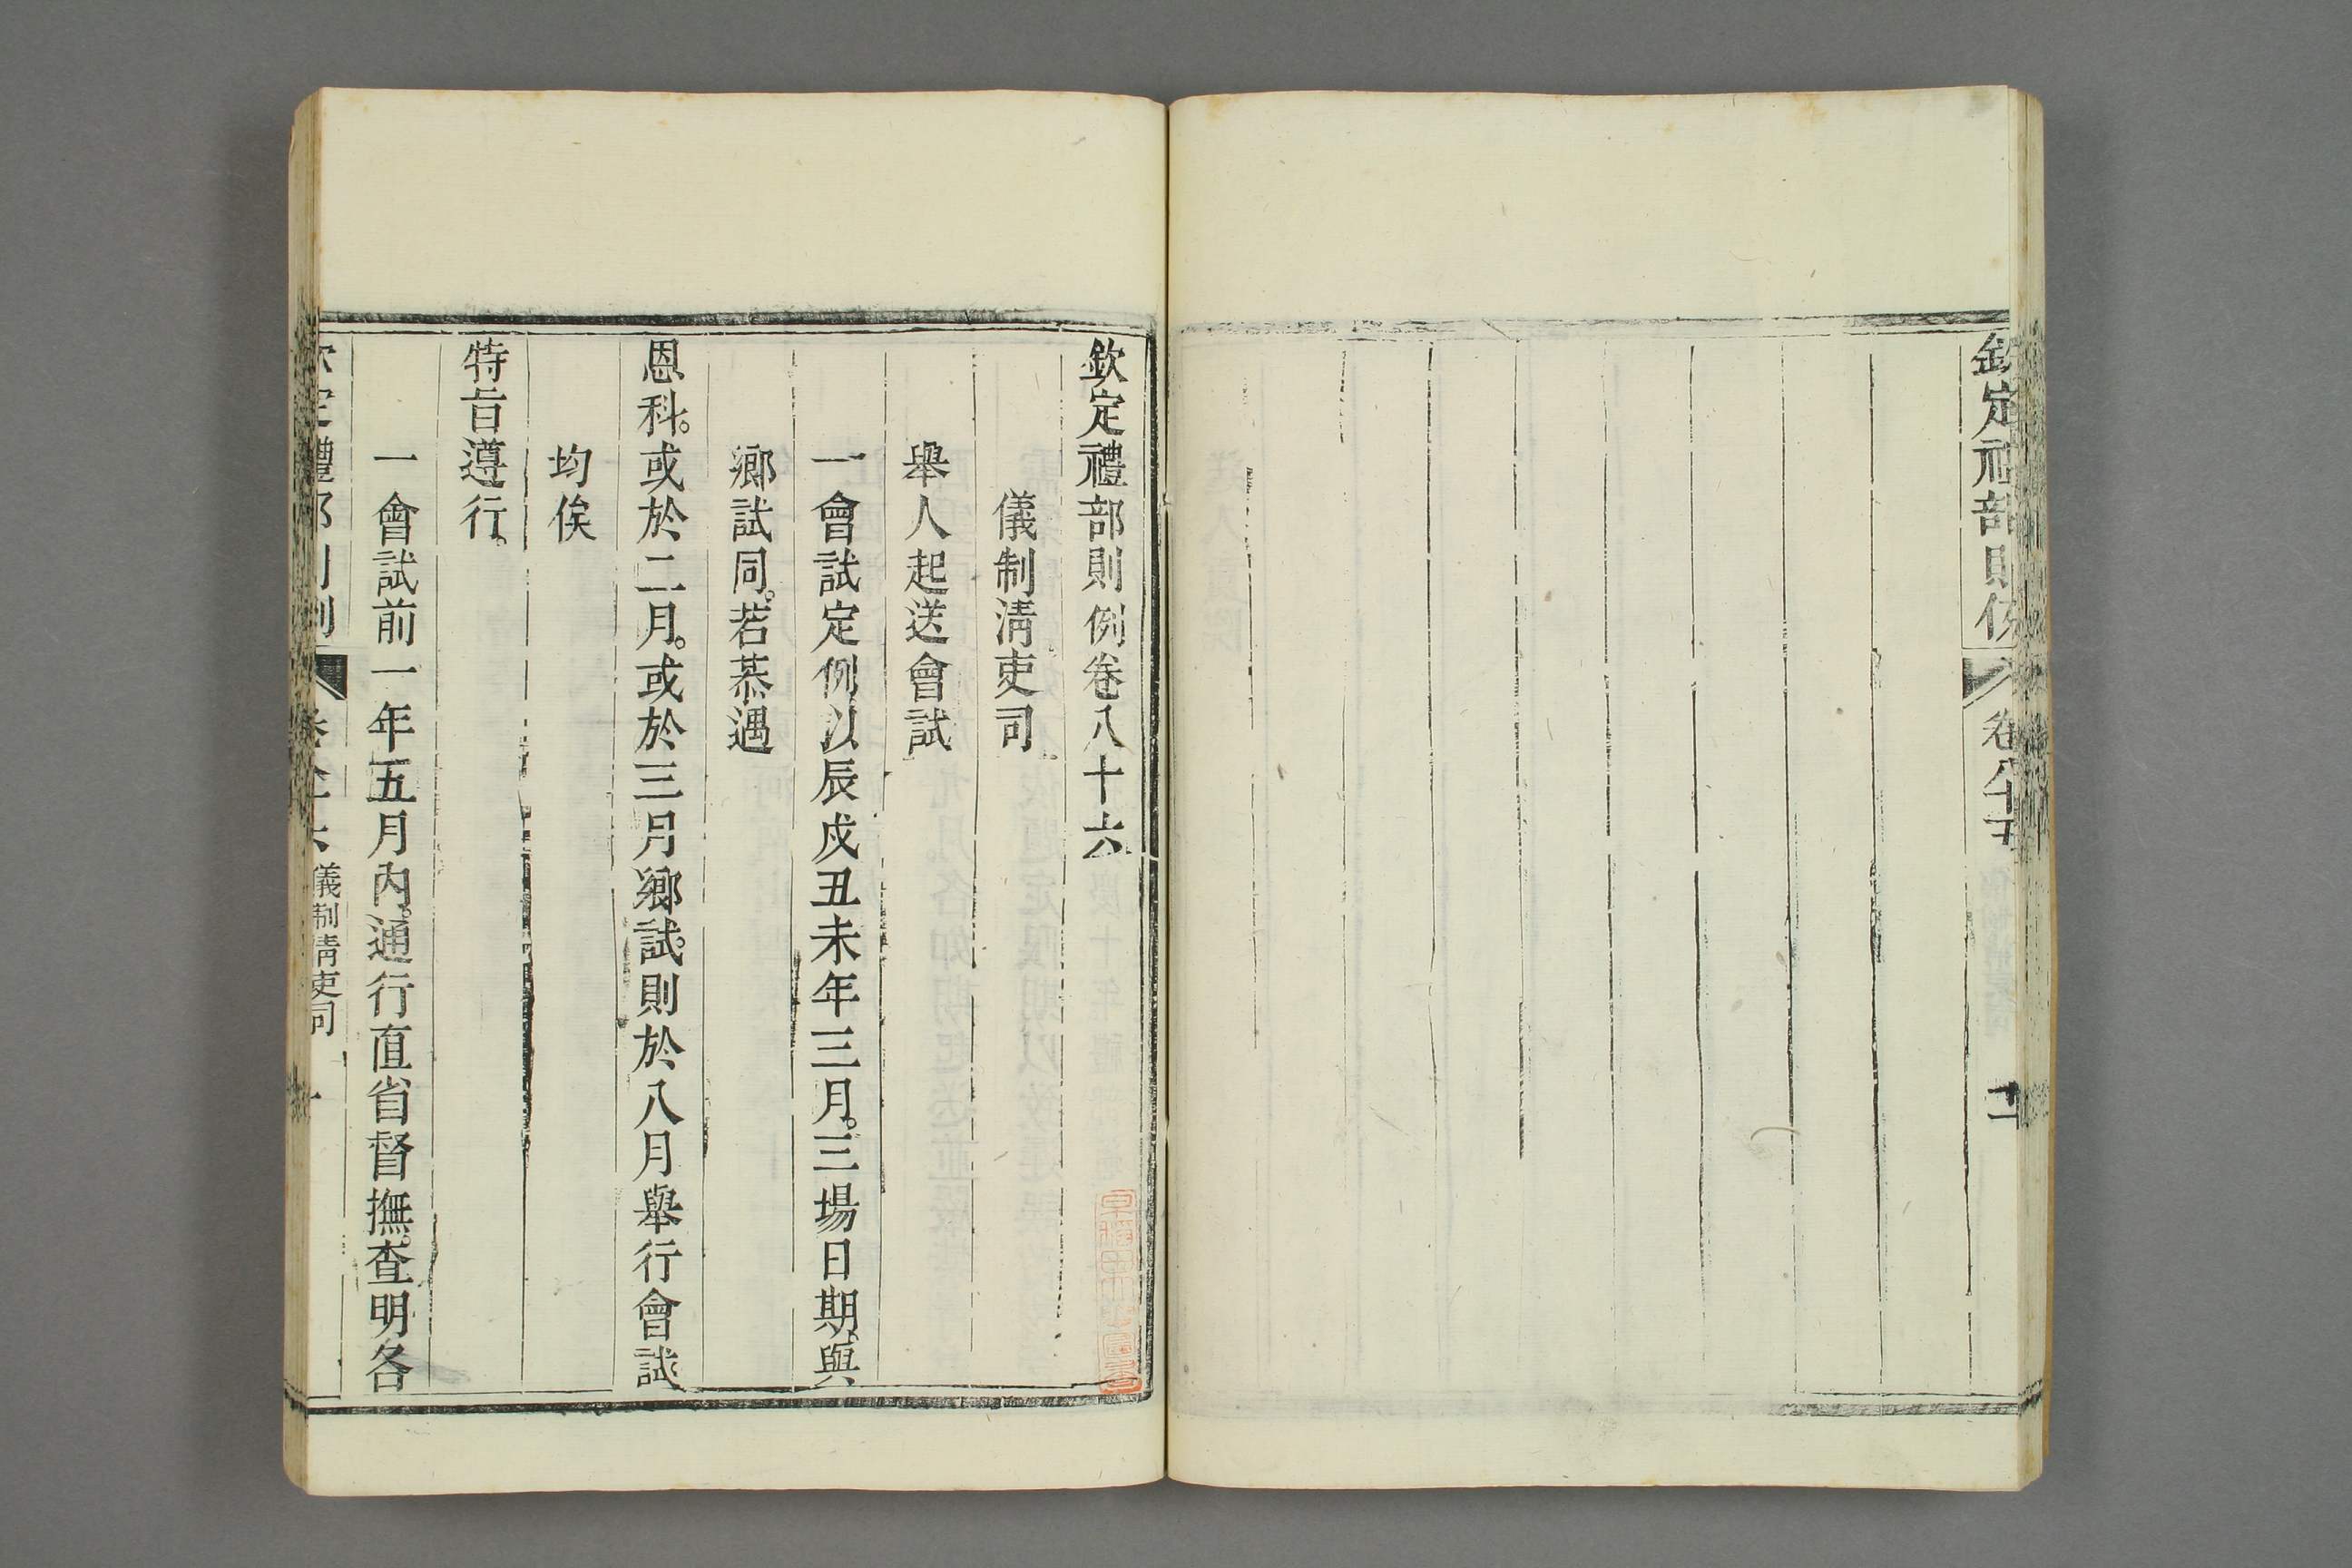 欽定禮部則例
卷八十五
二
欽定禮部則例卷八十六
儀制清吏司
舉人起送會試
一會試定例以辰戌丑未年三月。三場日期。與
鄉試同。若恭遇
恩科。或於二月。或於三月鄉試。則於八月舉行會試。
均俟
特旨遵行。
一會試前一年五月內。通行直省督撫。查明各
欽定禮部則例
卷八十六
儀制清吏司
一